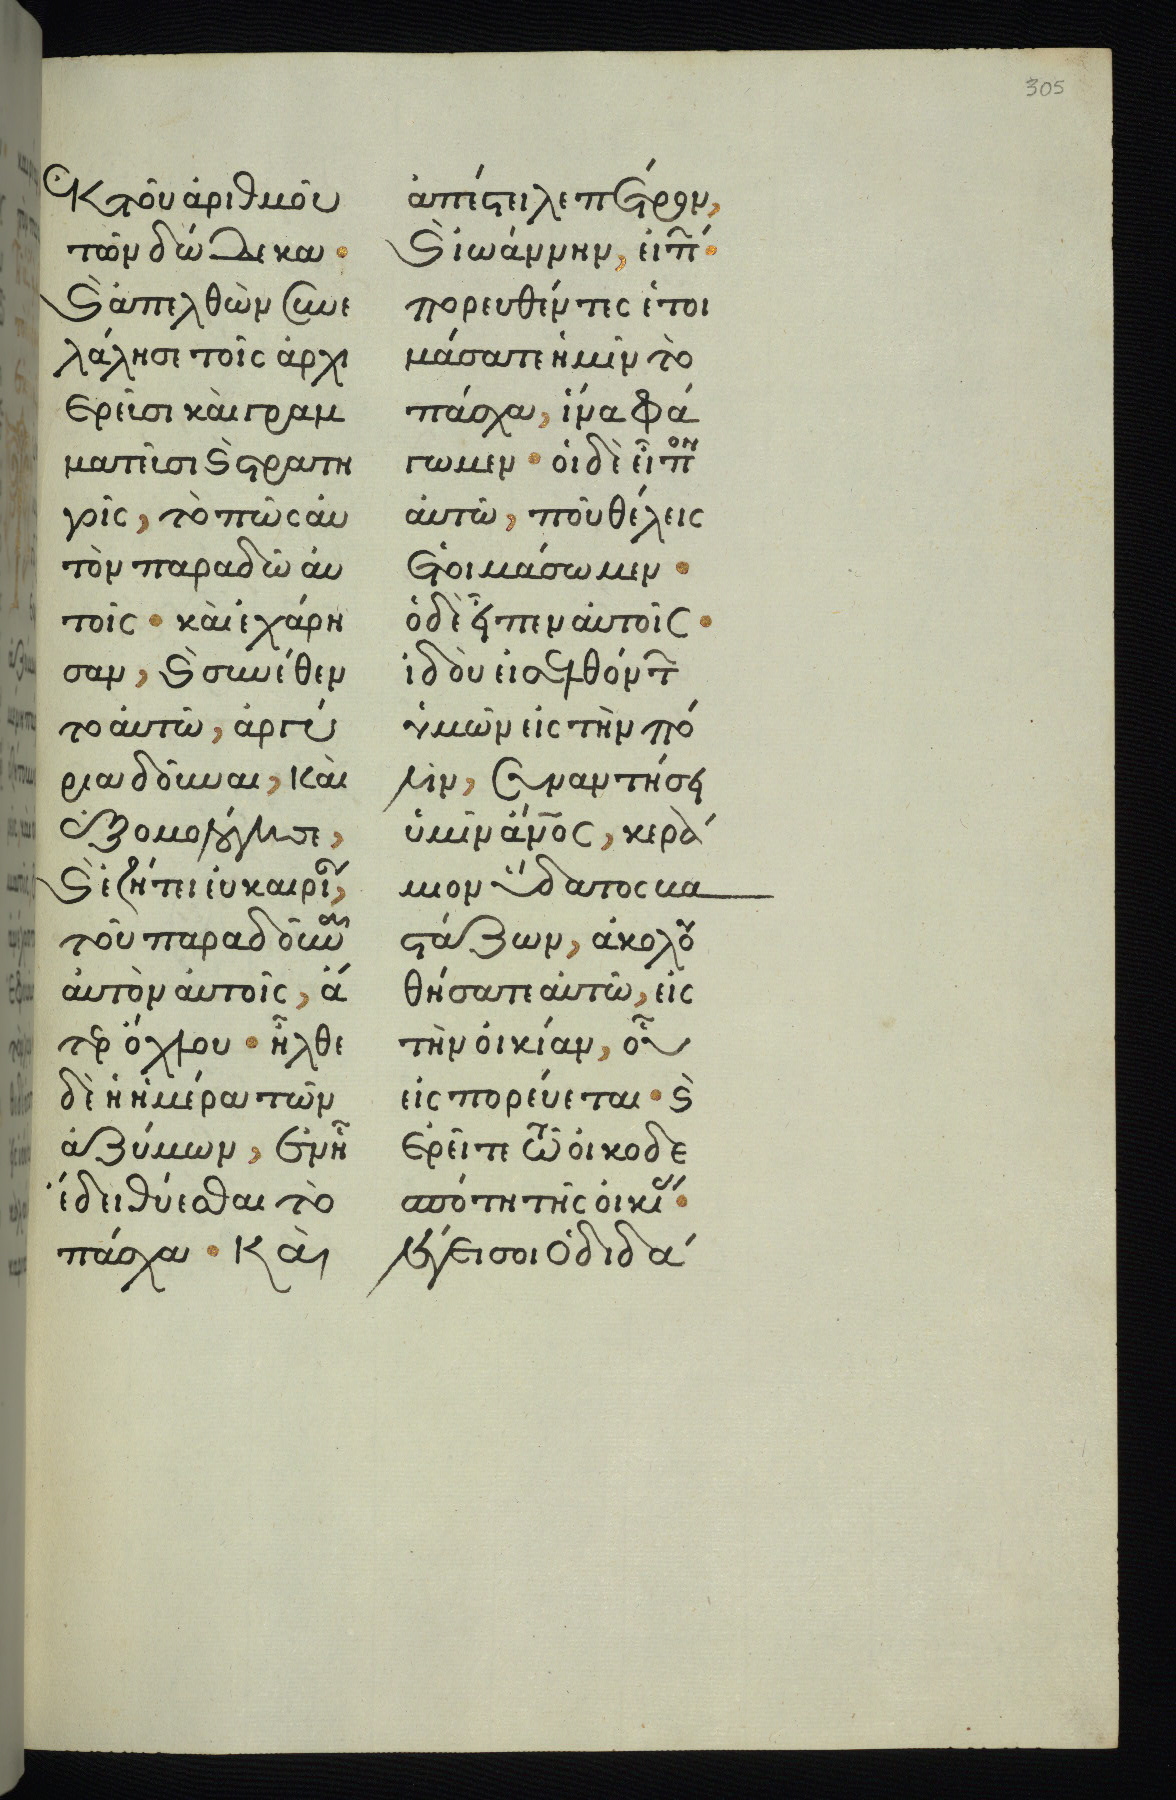 305
ἐκ τοῦ ἀριθμοῦ
τῶν δώδεκα·
ϗ ἀπελθὼν συνε
λάλησε τοῖς ἀρχι
ερεῦσι καὶ γραμ
ματεῦσι ϗ στρατη
γοῖς, τὸ πῶς αὐ
τὸν παραδῶ αὐ
τοῖς· καὶ ἐχάρη
σαν, ϗ συνέθεν
το αὐτῶ, ἀργύ
ρια δοῦναι, καὶ
ἐξομολόγησε,
ϗ ἐζήτει εὐκαιρί,
τοῦ παραδοῦν
αὐτὸν αὐτοῖς, ἄ
τερ ὄχλου· ἦλθε
δὲ ἡ ἡμέρα τῶν
ἀζύμων, ἐν ἧ
ἔδει θύεσθαι τὸ
πάσχα· Καὶ
ἀπέστειλε πέτρον,
ϗ ἰωάννην, εἰπ·
πορευθέντες ἑτοι
μάσατε ἡμῖν τὸ
πάσχα, ἵνα φά
γωμεν· οἱ δὲ εἶπον
αὐτῶ, ποῦ θέλεις
ἑτοιμάσωμεν·
ὁ δὲ εἶπεν αὐτοῖς·
ἰδοὺ εἰσελθόντ
ὑμῶν εἰς τὴν πό
λιν, συναντήσει
ὑμῖν ἄνος, κερά
μιον ὕδατος βα
στάζων, ἀκολου
θήσατε αὐτῶ, εἰς
τὴν οἰκίαν, οὗ
εἰσπορεύεται· ϗ
ἐρεῖτε τῶ οἰκοδε
σπότη τῆς οἰκί·
λέγει σοι ὁ διδά